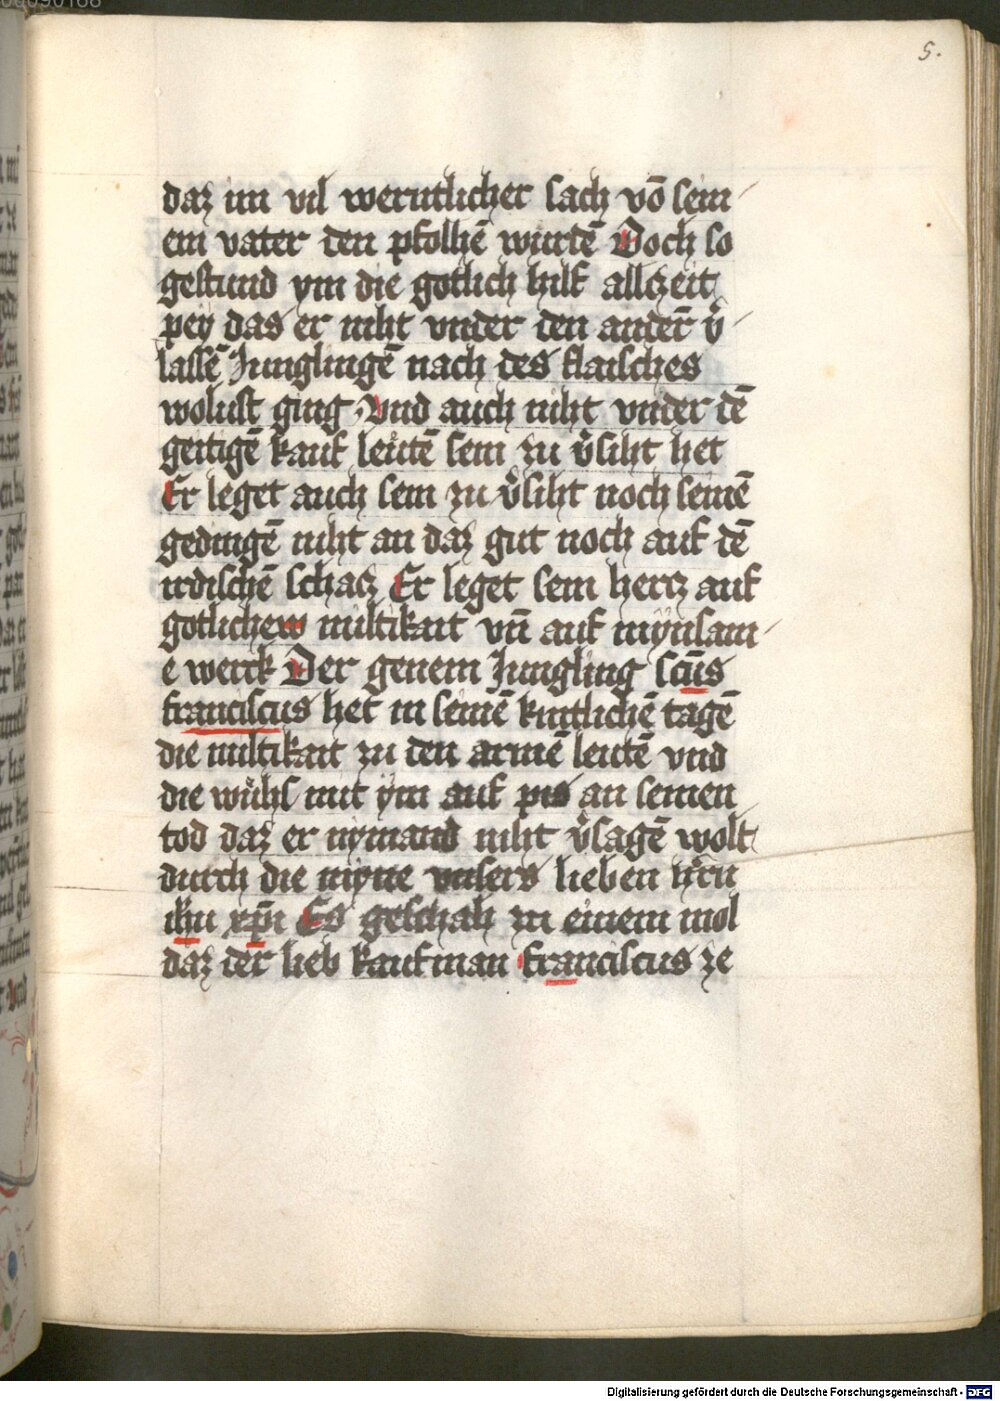 5.
daz im vil werntlicher sach vō sein
em vater den pfolhē wurdē Doch so
gestund ym die gotlich hilf allczeit
pey das er niht vnder den anderē v̓
lassē Junglingē nach des flaisches
wolust ging Vnd auch niht vnder dē
geitigē kauf leutē sein zu v̓siht het
Er leget auch sein zu v̓siht noch seinē
gedingē niht an daz gut noch auf dē
irdischē schacz Er leget sein hercz auf
gotlichew miltikait vn̄ auf mÿnsam
e werck Der genem Jungling scūs
franciscus het in seinē kintlichē tagē
die miltikait zu den armē leutē vnd
die wuͤhs mit ÿm auf pis an seinen
tod daz er nymand niht v̓sagē wolt
durch die mÿne vnsers lieben hr̄n
ihū xp̄i Es geschah zu einem mol
daz der lieb kaufman franciscus ze
Digitalisierung gefördert durch die Deutsche Forschungsgemeinschaft - DFG